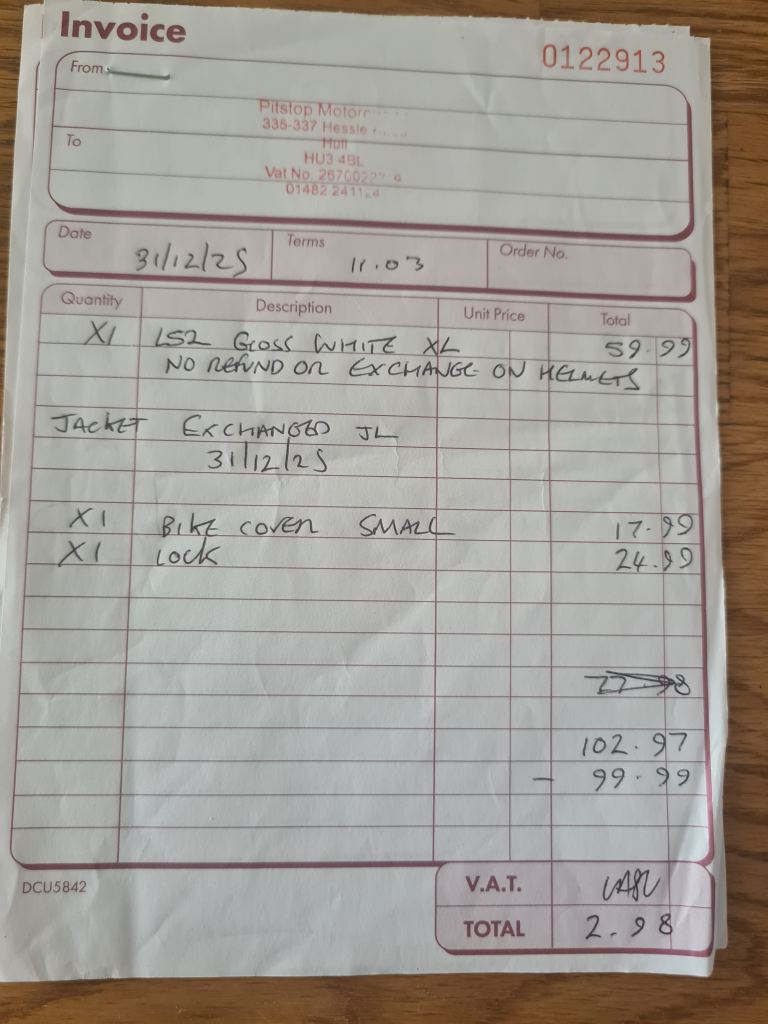 Invoice
0122913
From
Pitstop
335-337 Hessle
To
Hull
HU3 4BL
Vat No.
01482
Date
31/12/25
Terms
11.03
Order No.
Quantity Description Unit Price Total
X1 LS2 GLOSS WHITE XL 59.99
NO REFUND OR EXCHANGE ON HELMETS
JACKET EXCHANGED JL
31/12/25
X1 BIKE COVER SMALL 17.99
X1 LOCK 24.99
77.98
102.97
- 99.99
DCU5842
V.A.T. CASH
TOTAL 2.98